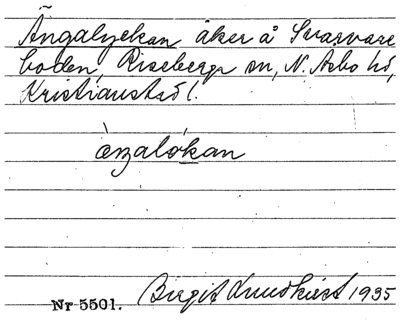 Ängalyckan, åker å Svarvare
boden, Riseberga sn, N. Åsbo hd,
Kristianstad l.
ænalọ́kan
Nr 5501. Birgit Lundkvist 1935